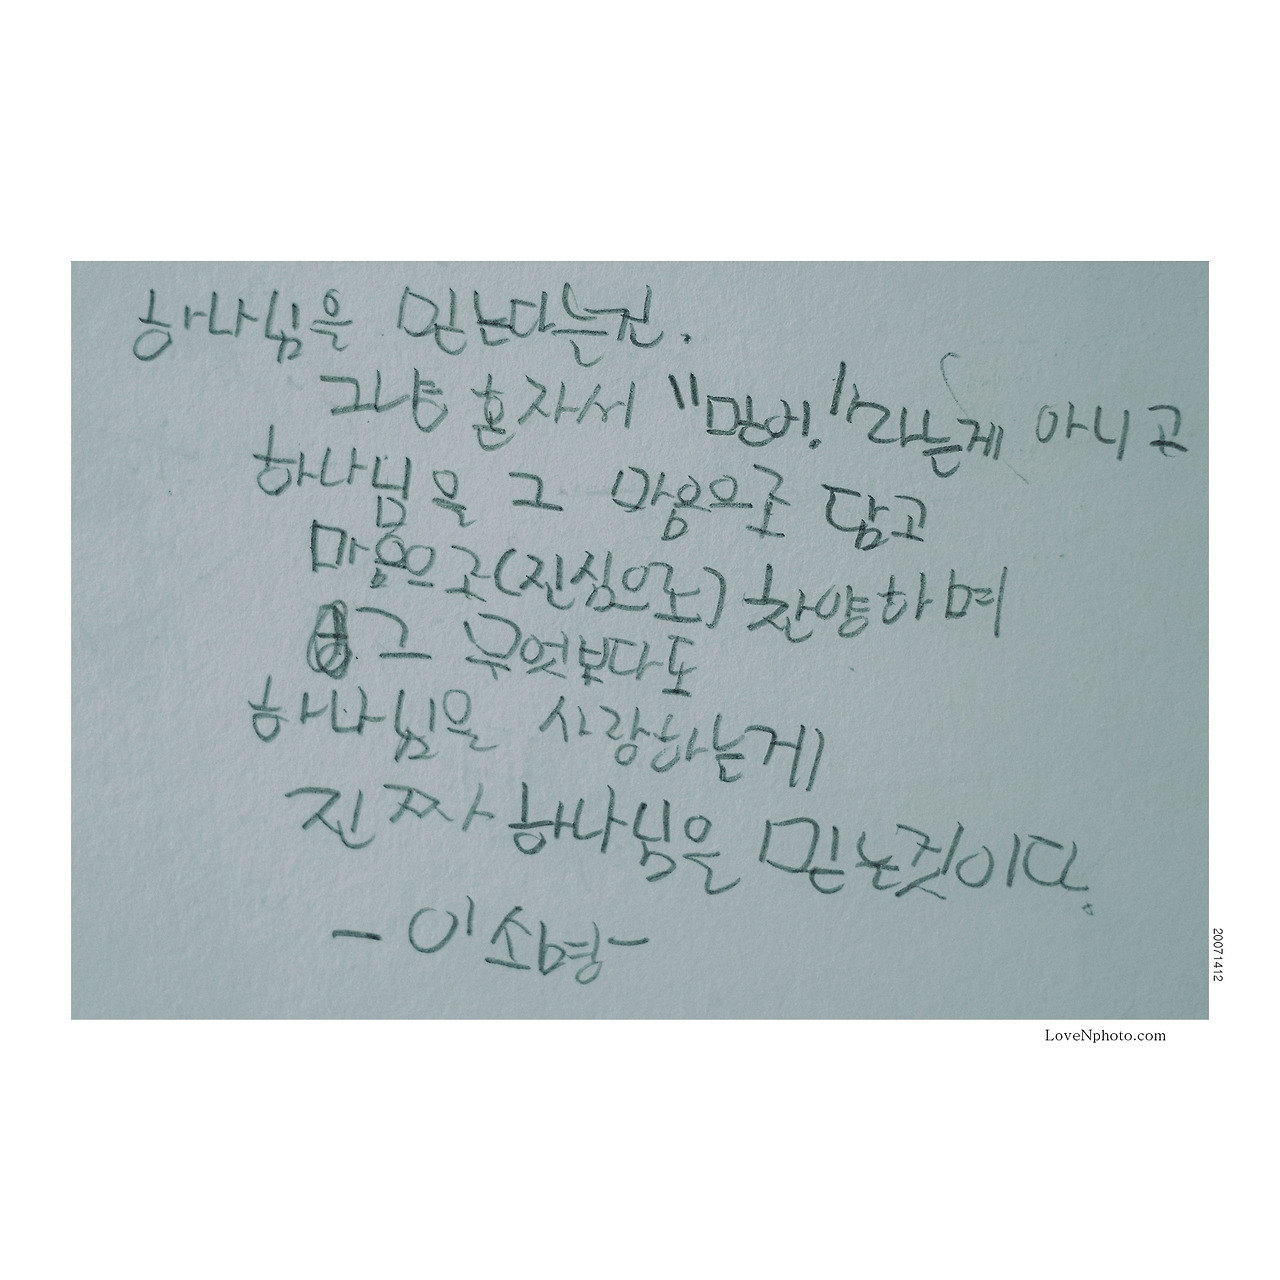 하나님을 믿는다는건.
그냥 혼자서 "믿어!"라는게 아니고
하나님을 그 마음으로 담고
마음으로(진심으로) 찬양하며
그 무엇보다도
하나님을 사랑하는게
진짜 하나님을 믿는것이다.
- 이소명 -
20071412
LoveNphoto.com